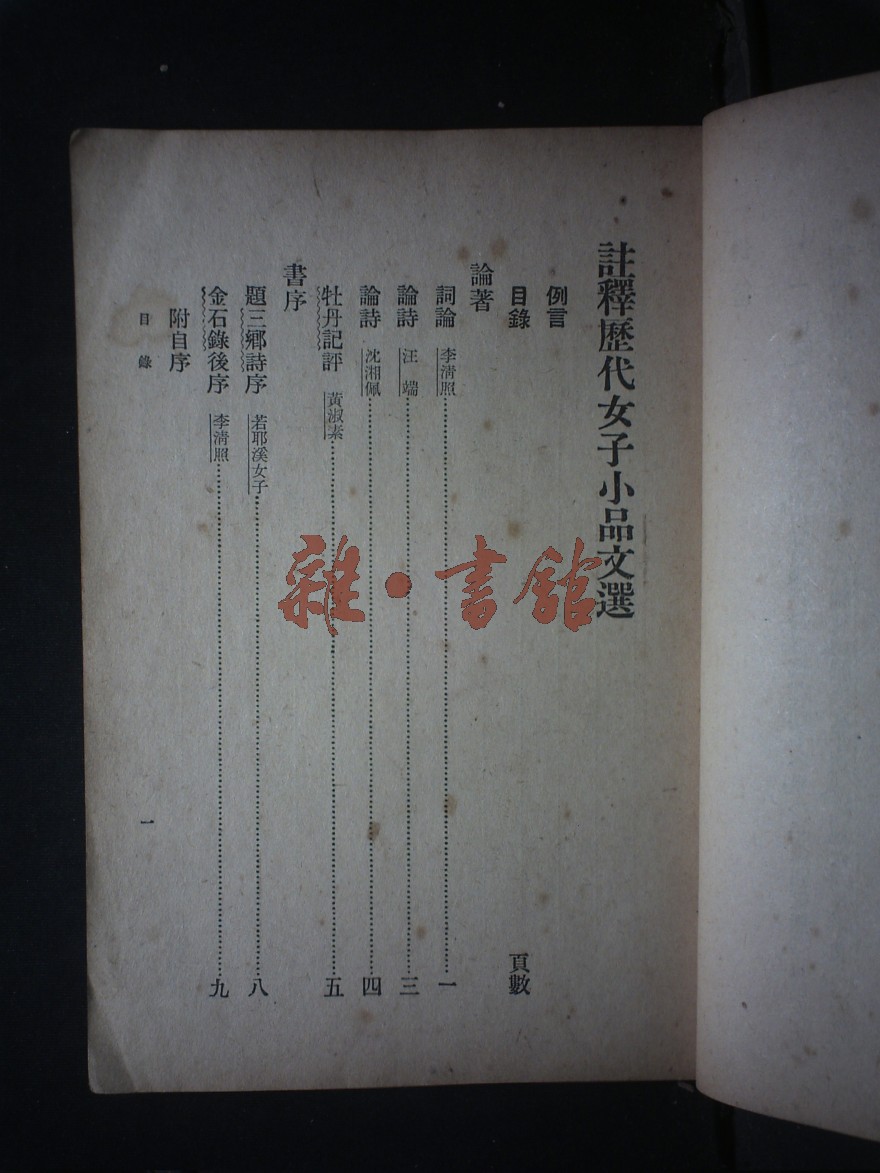 註釋歷代女子小品文選
例言
目錄 頁數
論著
詞論 李清照 一
論詩 汪端 三
論詩 沈湘佩 四
牡丹記評 黃淑素 五
書序
題三鄉詩序 若耶溪女子 八
金石錄後序 李清照 九
附自序
目錄 一
雜·書館